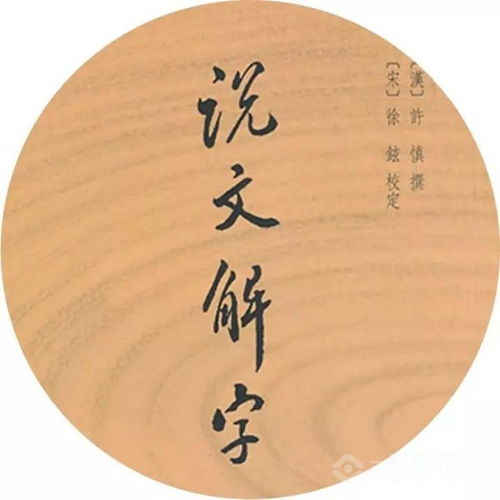 〔漢〕許 慎 撰
〔宋〕徐 鉉 校定
说文解字